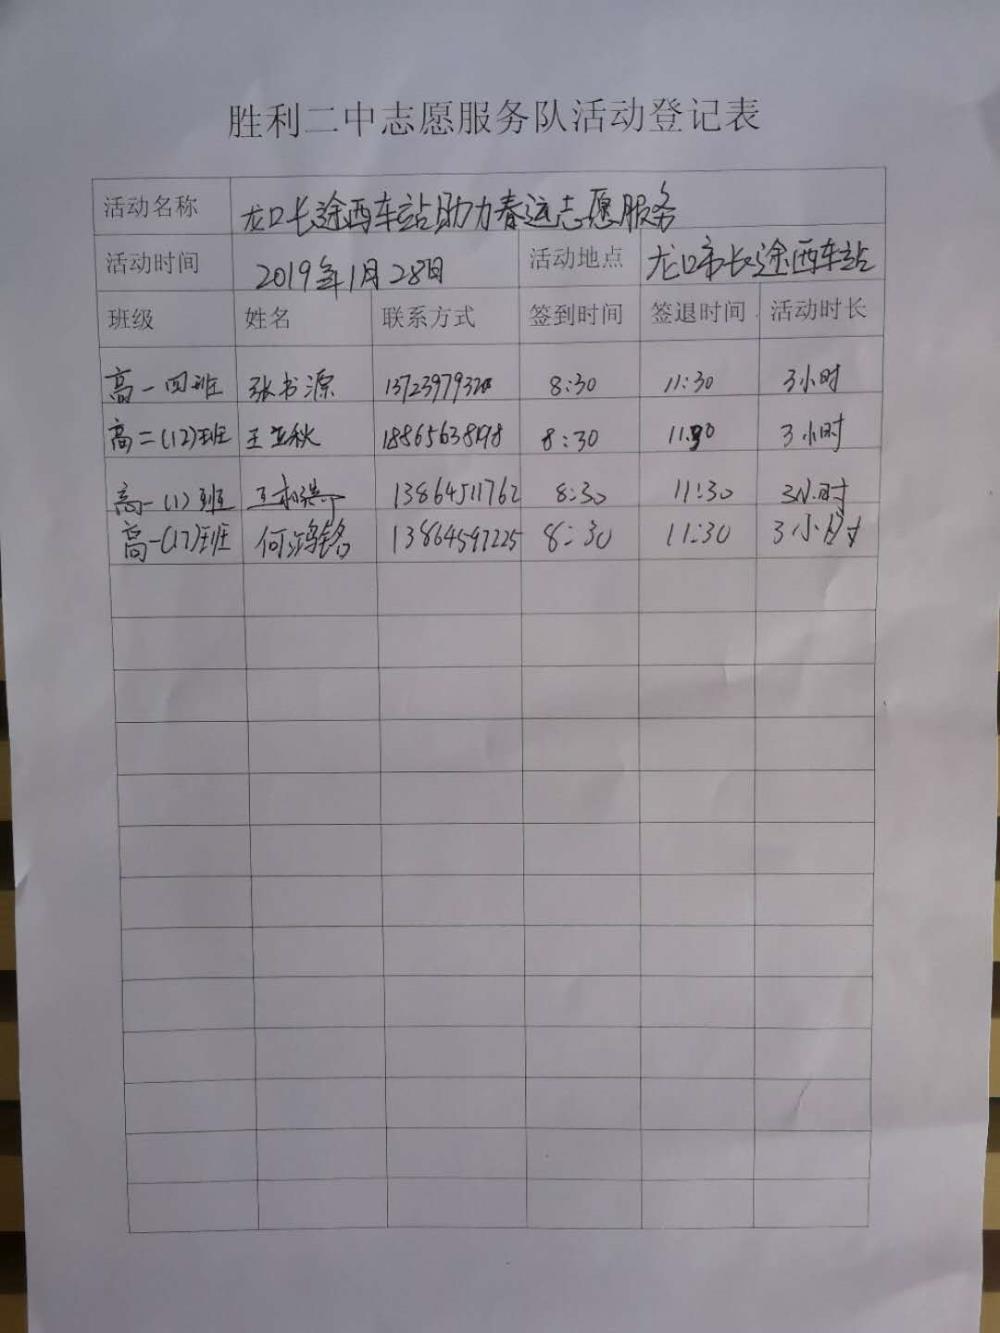 胜利二中志愿服务队活动登记表
活动名称 龙口长途西车站助力春运志愿服务
活动时间 2019年1月28日 活动地点 龙口市长途西车站
班级 姓名 联系方式 签到时间 签退时间 活动时长
高一四班 张书源 8:30 11:30 3小时
高二(12)班 王 秋 8:30 11:30 3小时
高一(1)班 王 13864511762 8:30 11:30 3小时
高一(17)班 何鸿铭 13864597225 8:30 11:30 3小时